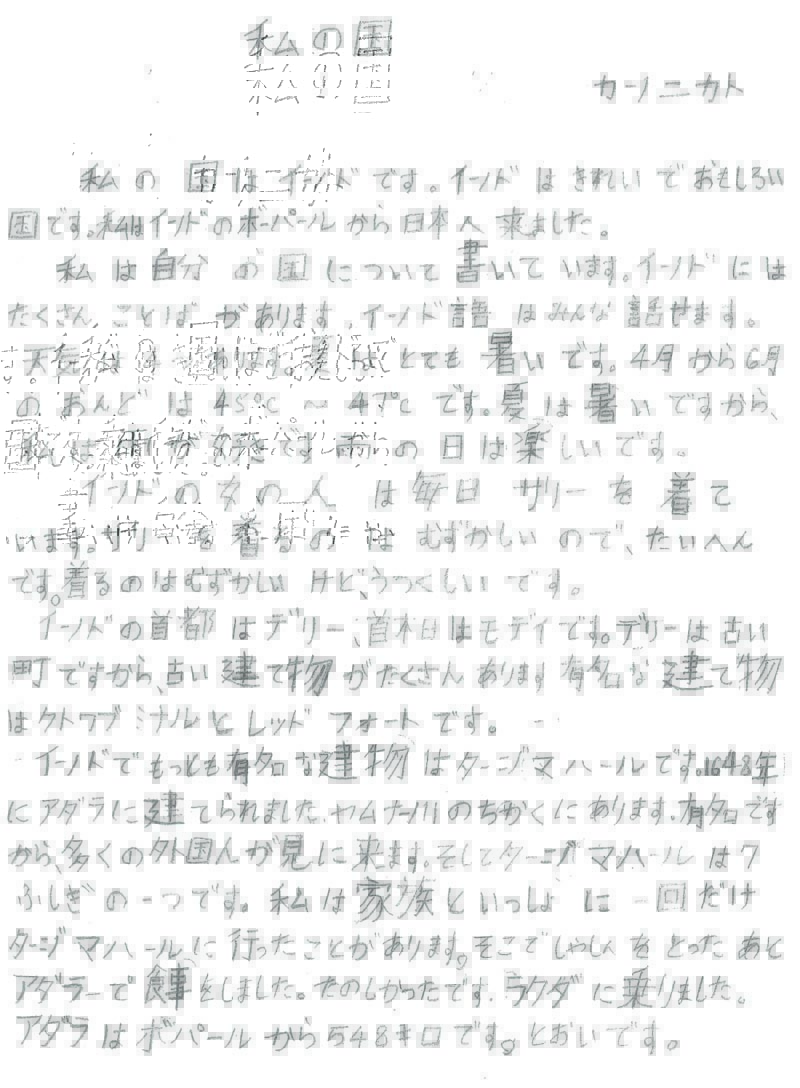 私の国
私の国
カーノニカト
私の国はインドです。インドはきれいでおもしろい
国です。私はインドのボーパールから日本へ来ました。
私は自分の国について書いています。インドには
たくさんことばがあります。インド語はみんな話せます。
とても暑いです。4月から6月
のおんどは45℃〜47℃です。夏は暑いですから、
の日は楽しいです。
インドの女の人は毎日サリーを着て
います。サリーを着るのはむずかしいので、たいへん
です。着るのはむずかしいけど、うつくしいです。
インドの首都はデリー、首本日はモディです。デリーは古い
町ですから、古い建て物がたくさんあります。有名な建て物
はクトラブミナルとレッドフォートです。
インドでもっとも有名な建物はタージマハールです。1648年
にアグラに建てられました。ヤムナー川のちかくにあります。有名です
から、多くの外国人が見に来ます。そしてタージマハールは7
ふしぎの一つです。私は家族といっしょに一回だけ
タージマハールに行ったことがあります。そこでしゃしんをとったあと
アグラーで食事をしました。たのしかったです。ラクダに乗りました。
アグラはボパールから548キロです。とおいです。